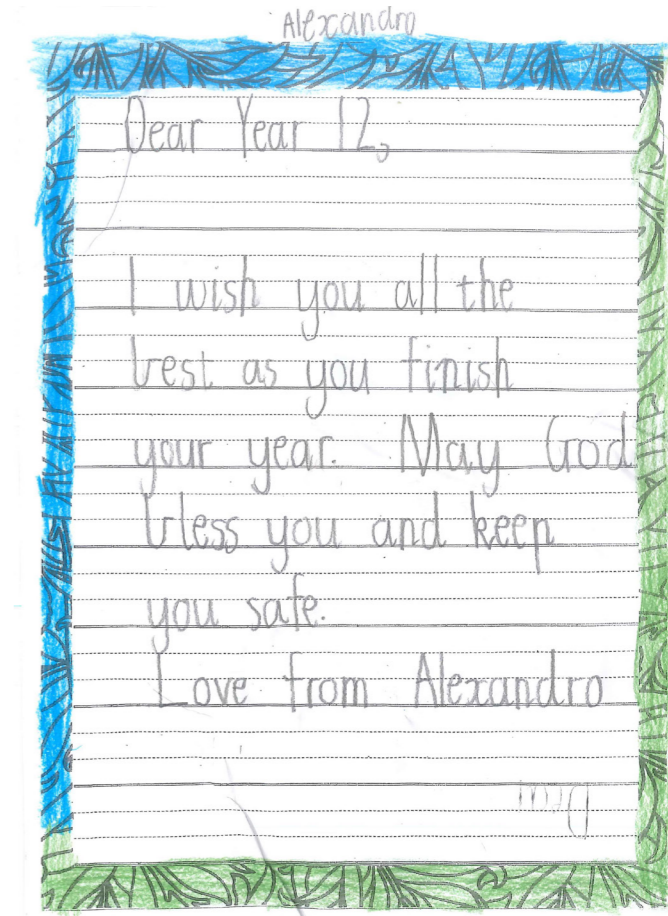 Alexandro
Dear Year 12,
I wish you all the
best as you finish
your year. May God
bless you and keep
you safe.
Love from Alexandro